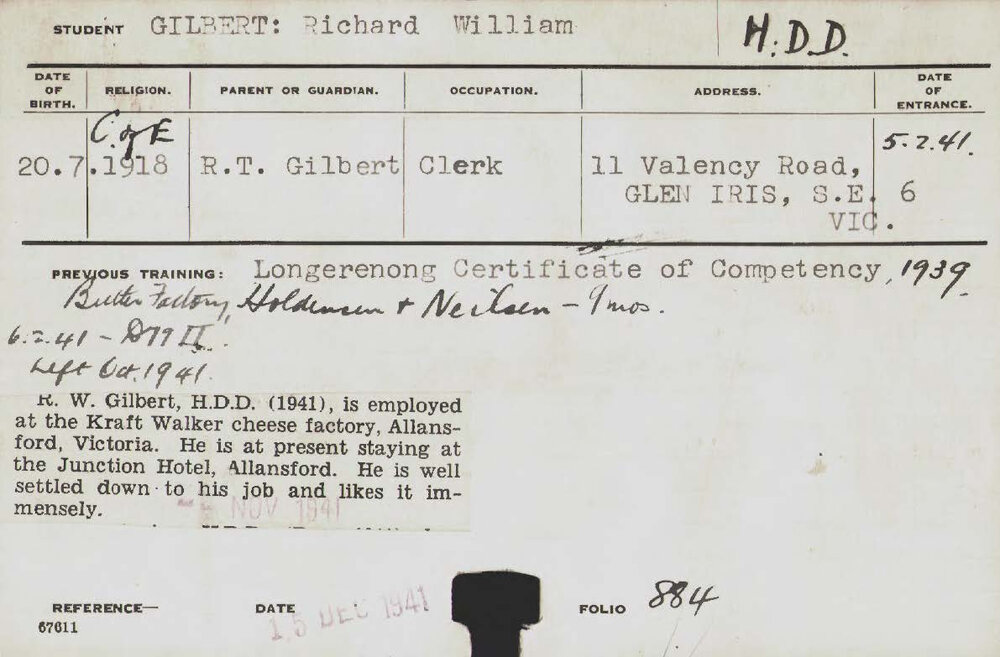 STUDENT GILBERT: Richard William H.D.D.
DATE OF BIRTH. RELIGION. PARENT OR GUARDIAN. OCCUPATION. ADDRESS. DATE OF ENTRANCE.
C. of E
5.2.41.
20.7.1918 R.T. Gilbert Clerk 11 Valency Road,
GLEN IRIS, S.E. 6
VIC.
PREVIOUS TRAINING: Longerenong Certificate of Competency, 1939.
Butter Factory, Holdensen + Neilsen - 9 mos.
6.2.41 - II.
Left Oct. 1941.
R. W. Gilbert, H.D.D. (1941), is employed
at the Kraft Walker cheese factory, Allans-
ford, Victoria. He is at present staying at
the Junction Hotel, Allansford. He is well
settled down to his job and likes it im-
mensely.
NOV 1941
REFERENCE— DATE 15 DEC 1941 FOLIO 884
67611